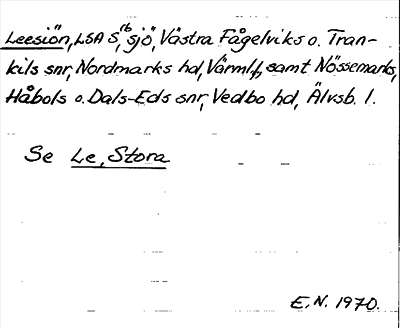 Leesiön, LSA S, "sjö", Västra Fågelviks o. Tran-
kils snr, Nordmarks hd, Värml., samt Nössemarks,
Håbols o. Dals-Eds snr, Vedbo hd, Älvsb. l.
Se Le, Stora
E.N. 1970.